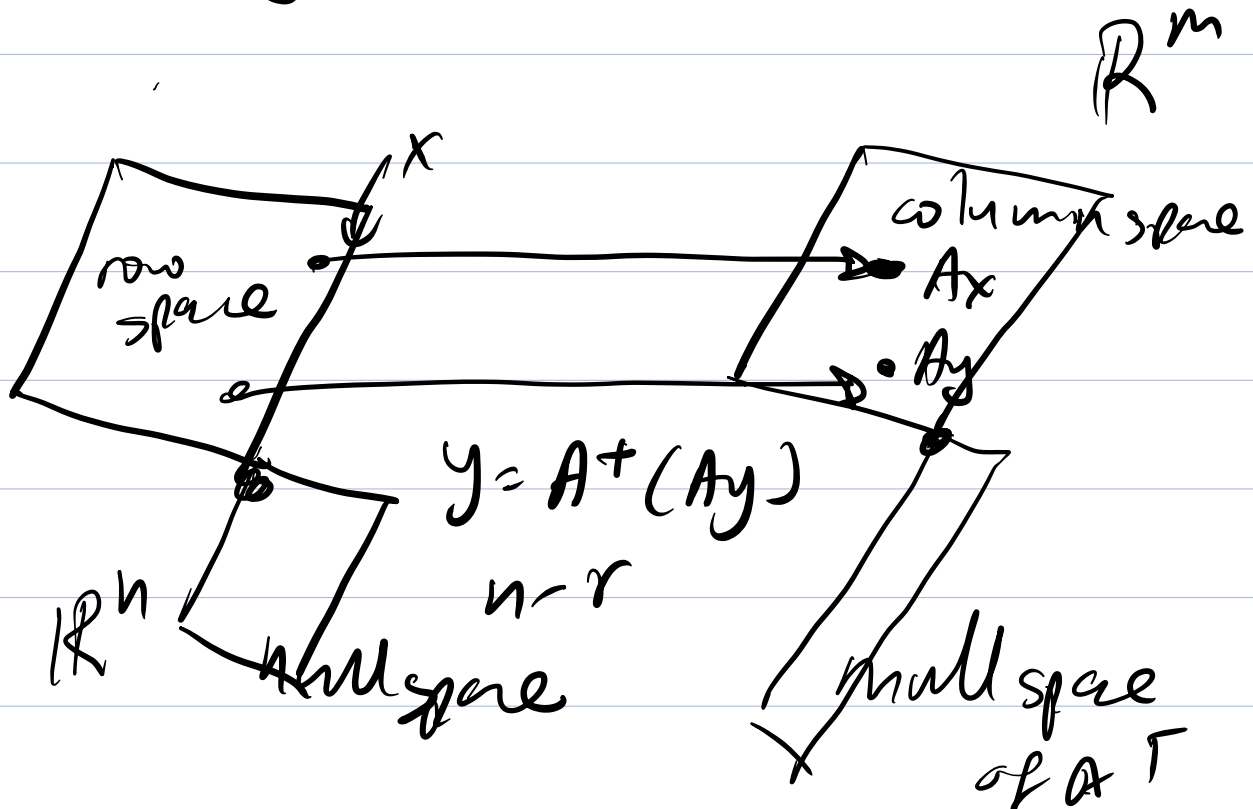 R^m
x
column space
row
space
Ax
Ay
y = A^+ (Ay)
n-r
R^n
null space
null space
of A^T